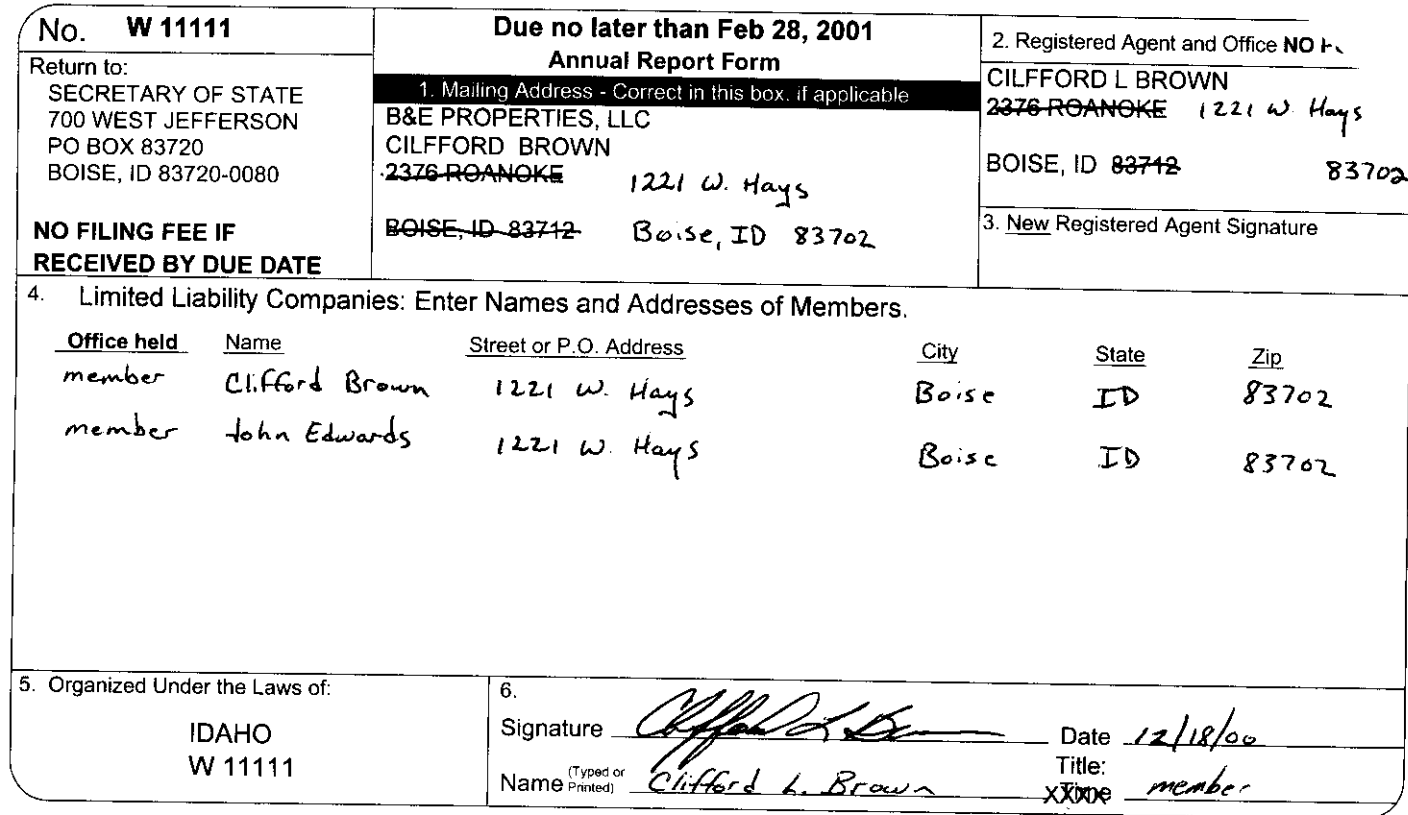 No. W 11111
Return to:
SECRETARY OF STATE
700 WEST JEFFERSON
PO BOX 83720
BOISE, ID 83720-0080
NO FILING FEE IF
RECEIVED BY DUE DATE
Due no later than Feb 28, 2001
Annual Report Form
1. Mailing Address - Correct in this box, if applicable
B&E PROPERTIES, LLC
CILFFORD BROWN
2376 ROANOKE 1221 W. Hays
BOISE, ID 83712 Boise, ID 83702
2. Registered Agent and Office NO
CILFFORD L BROWN
2376 ROANOKE 1221 W. Hays
BOISE, ID 83712 83702
3. New Registered Agent Signature
4. Limited Liability Companies: Enter Names and Addresses of Members.
Office held Name Street or P.O. Address City State Zip
member Clifford Brown 1221 W. Hays Boise ID 83702
member John Edwards 1221 W. Hays Boise ID 83702
5. Organized Under the Laws of:
IDAHO
W 11111
6.
Signature Clifford L Brown Date 12/18/00
Name (Typed or Printed) Clifford L. Brown Title: member